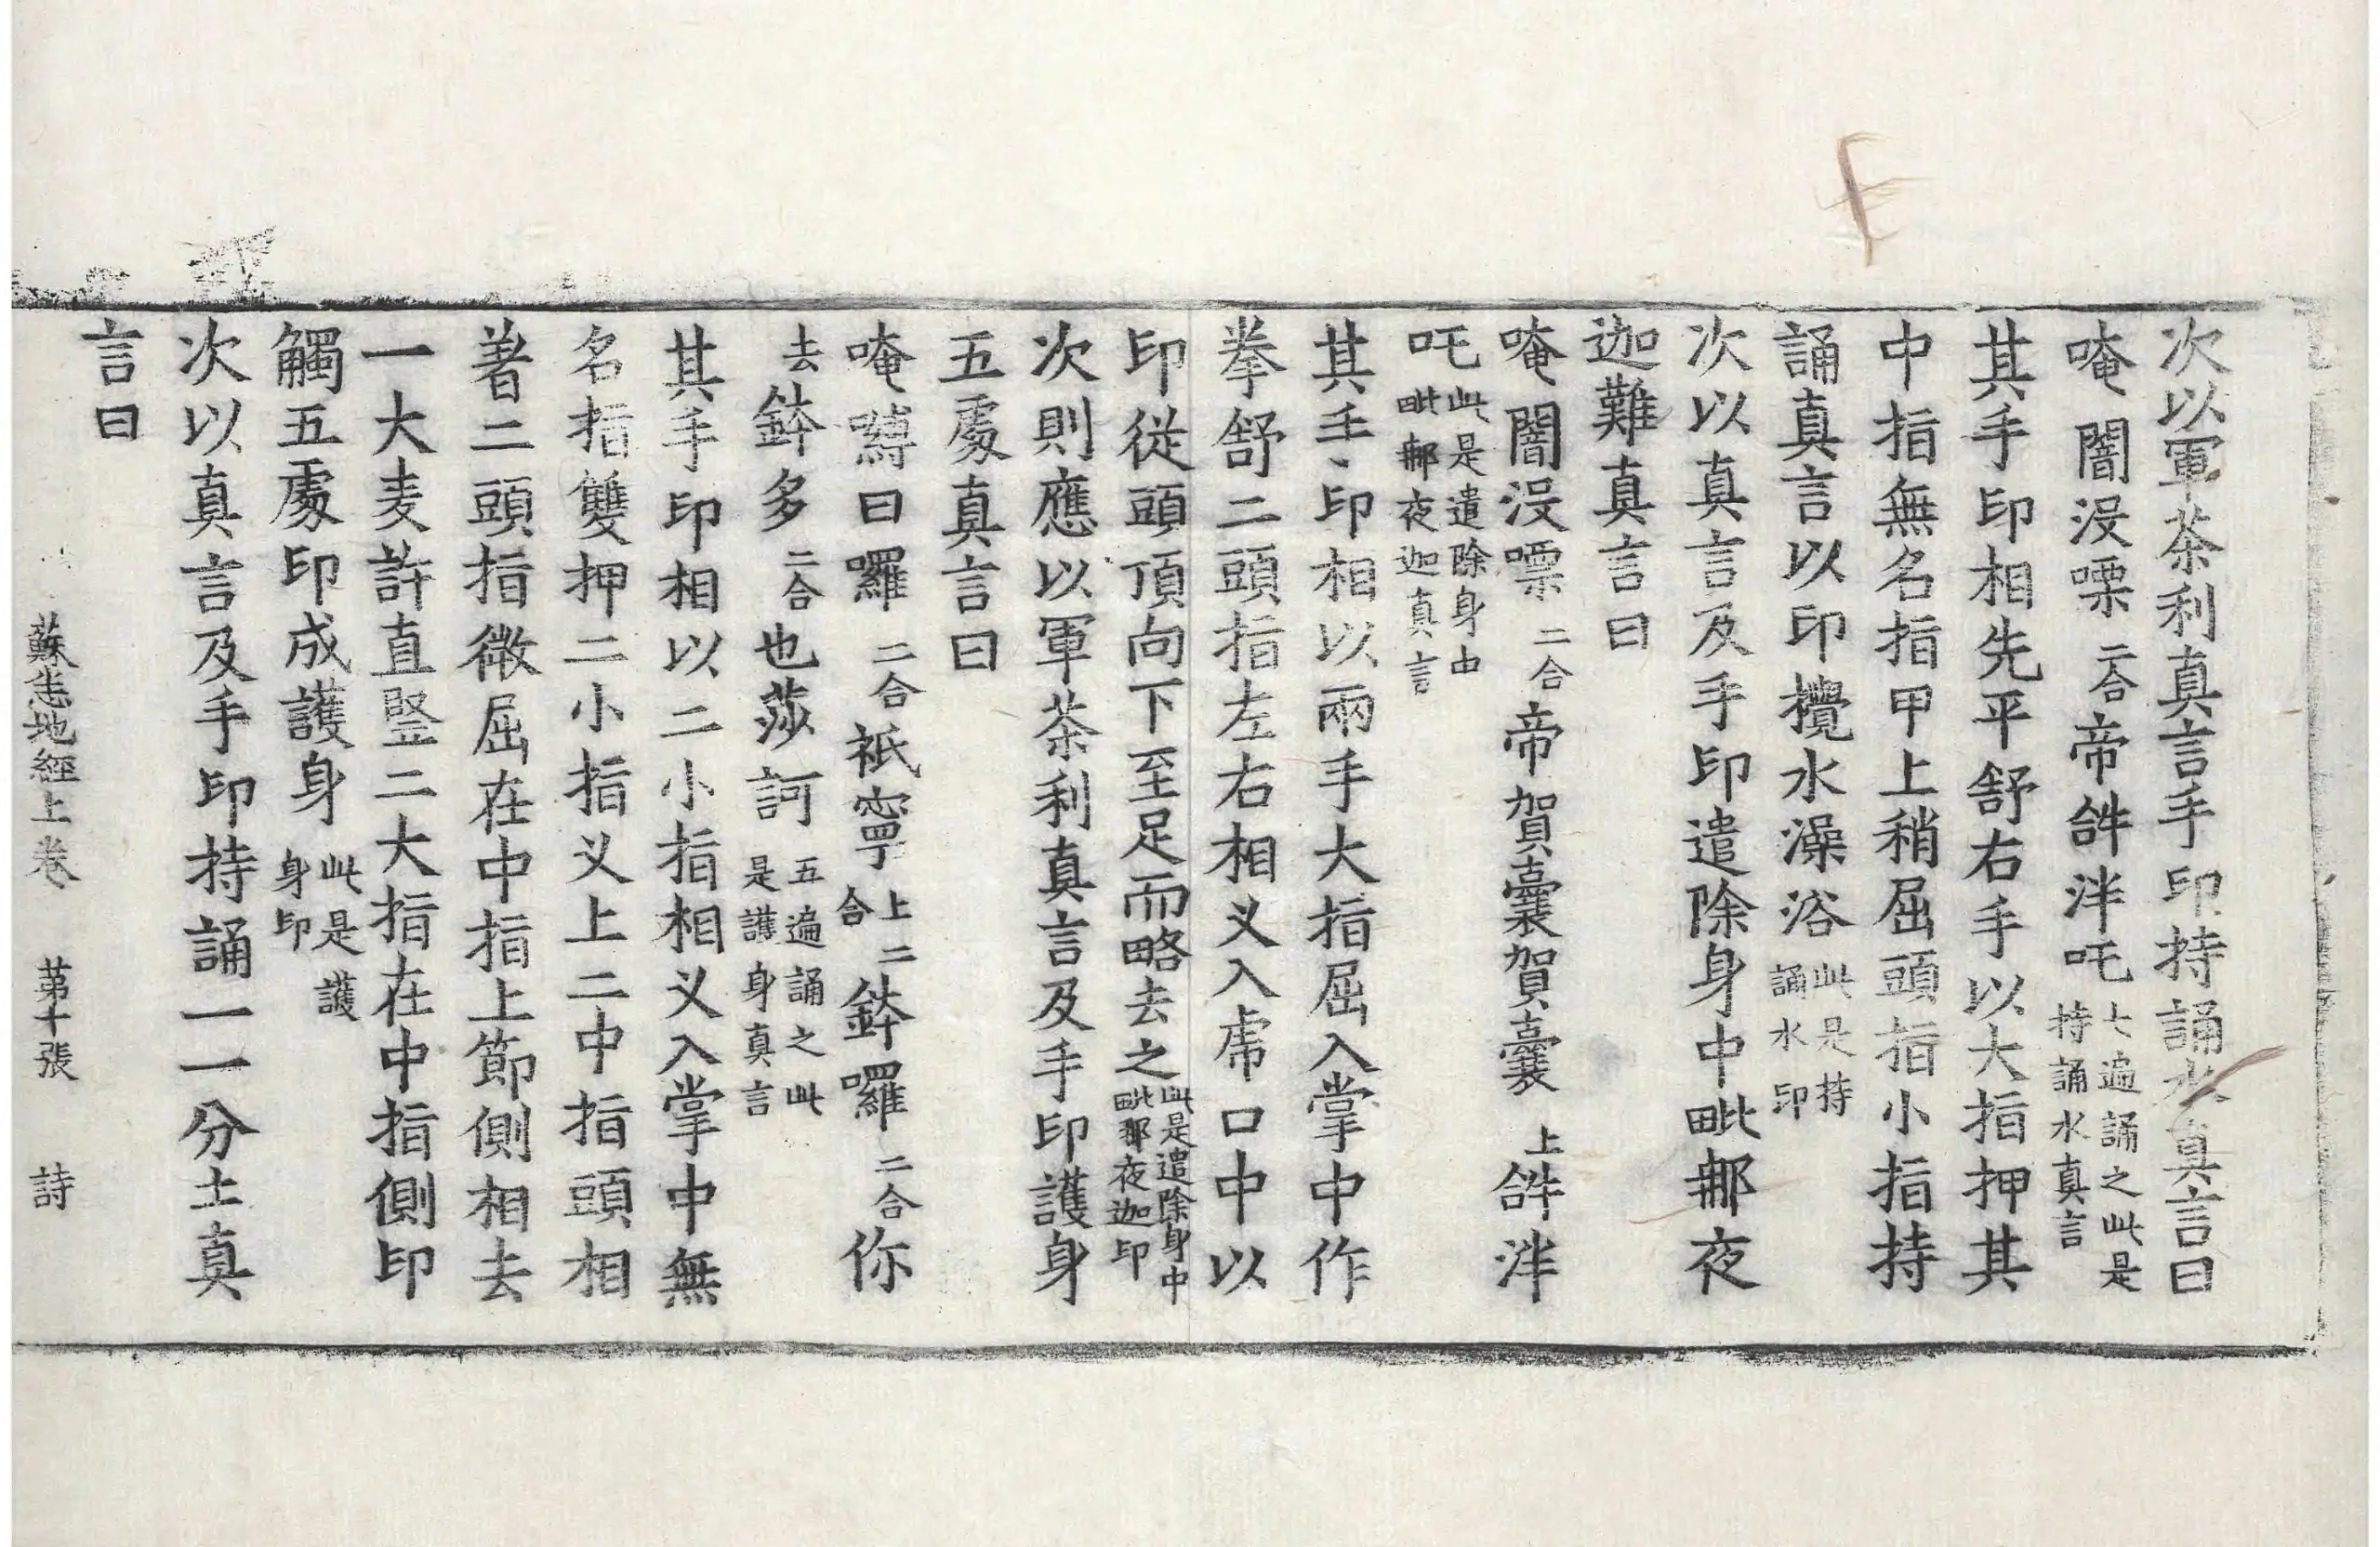 次以軍荼利真言手印持誦水真言曰
唵闇沒㗚二合帝𤙖泮吒七遍誦之此是持誦水真言
其手印相先平舒右手以大指押其
中指無名指甲上稍屈頭指小指持
誦真言以印攪水澡浴此是持誦水印
次以真言及手印遣除身中毗那夜
迦難真言曰
唵闇沒㗚二合帝賀曩賀曩上𤙖泮
吒此是遣除身中毗那夜迦真言
其手印相以兩手大指屈入掌中作
拳舒二頭指左右相叉入虎口中以
印從頭頂向下至足而略去之此是遣除身中毗那夜迦印
次則應以軍荼利真言及手印護身
五處真言曰
唵嚩曰囉二合祇寧上二合鉢囉二合你
去鉢多二合也莎訶五遍誦之此是護身真言
其手印相以二小指相叉入掌中無
名指雙押二小指叉上二中指頭相
著二頭指微屈在中指上節側相去
一大麦許直竪二大指在中指側印
觸五處印成護身此是護身印
次以真言及手印持誦一一分土真
言曰
蘇悉地經上卷　苐十張　詩